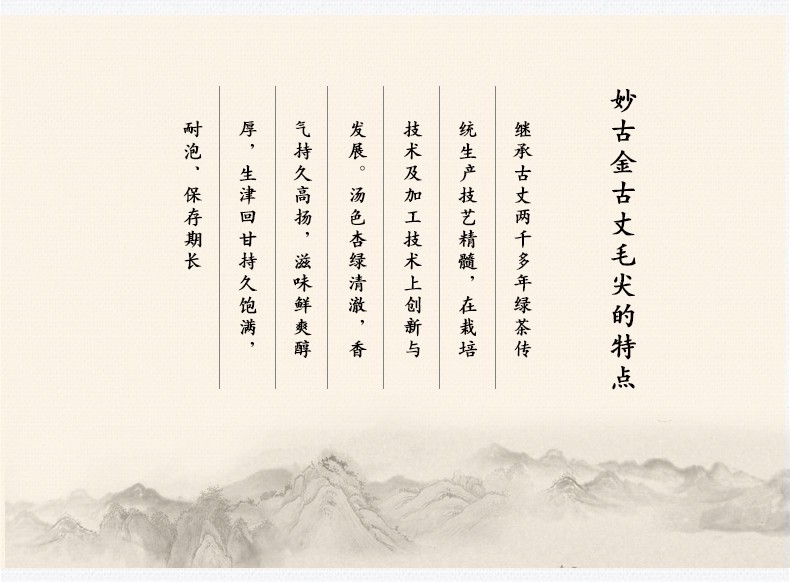 妙古金古丈毛尖的特点
继承古丈两千多年绿茶传
统生产技艺精髓，在栽培
技术及加工技术上创新与
发展。汤色杏绿清澈，香
气持久高扬，滋味鲜爽醇
厚，生津回甘持久饱满，
耐泡、保存期长